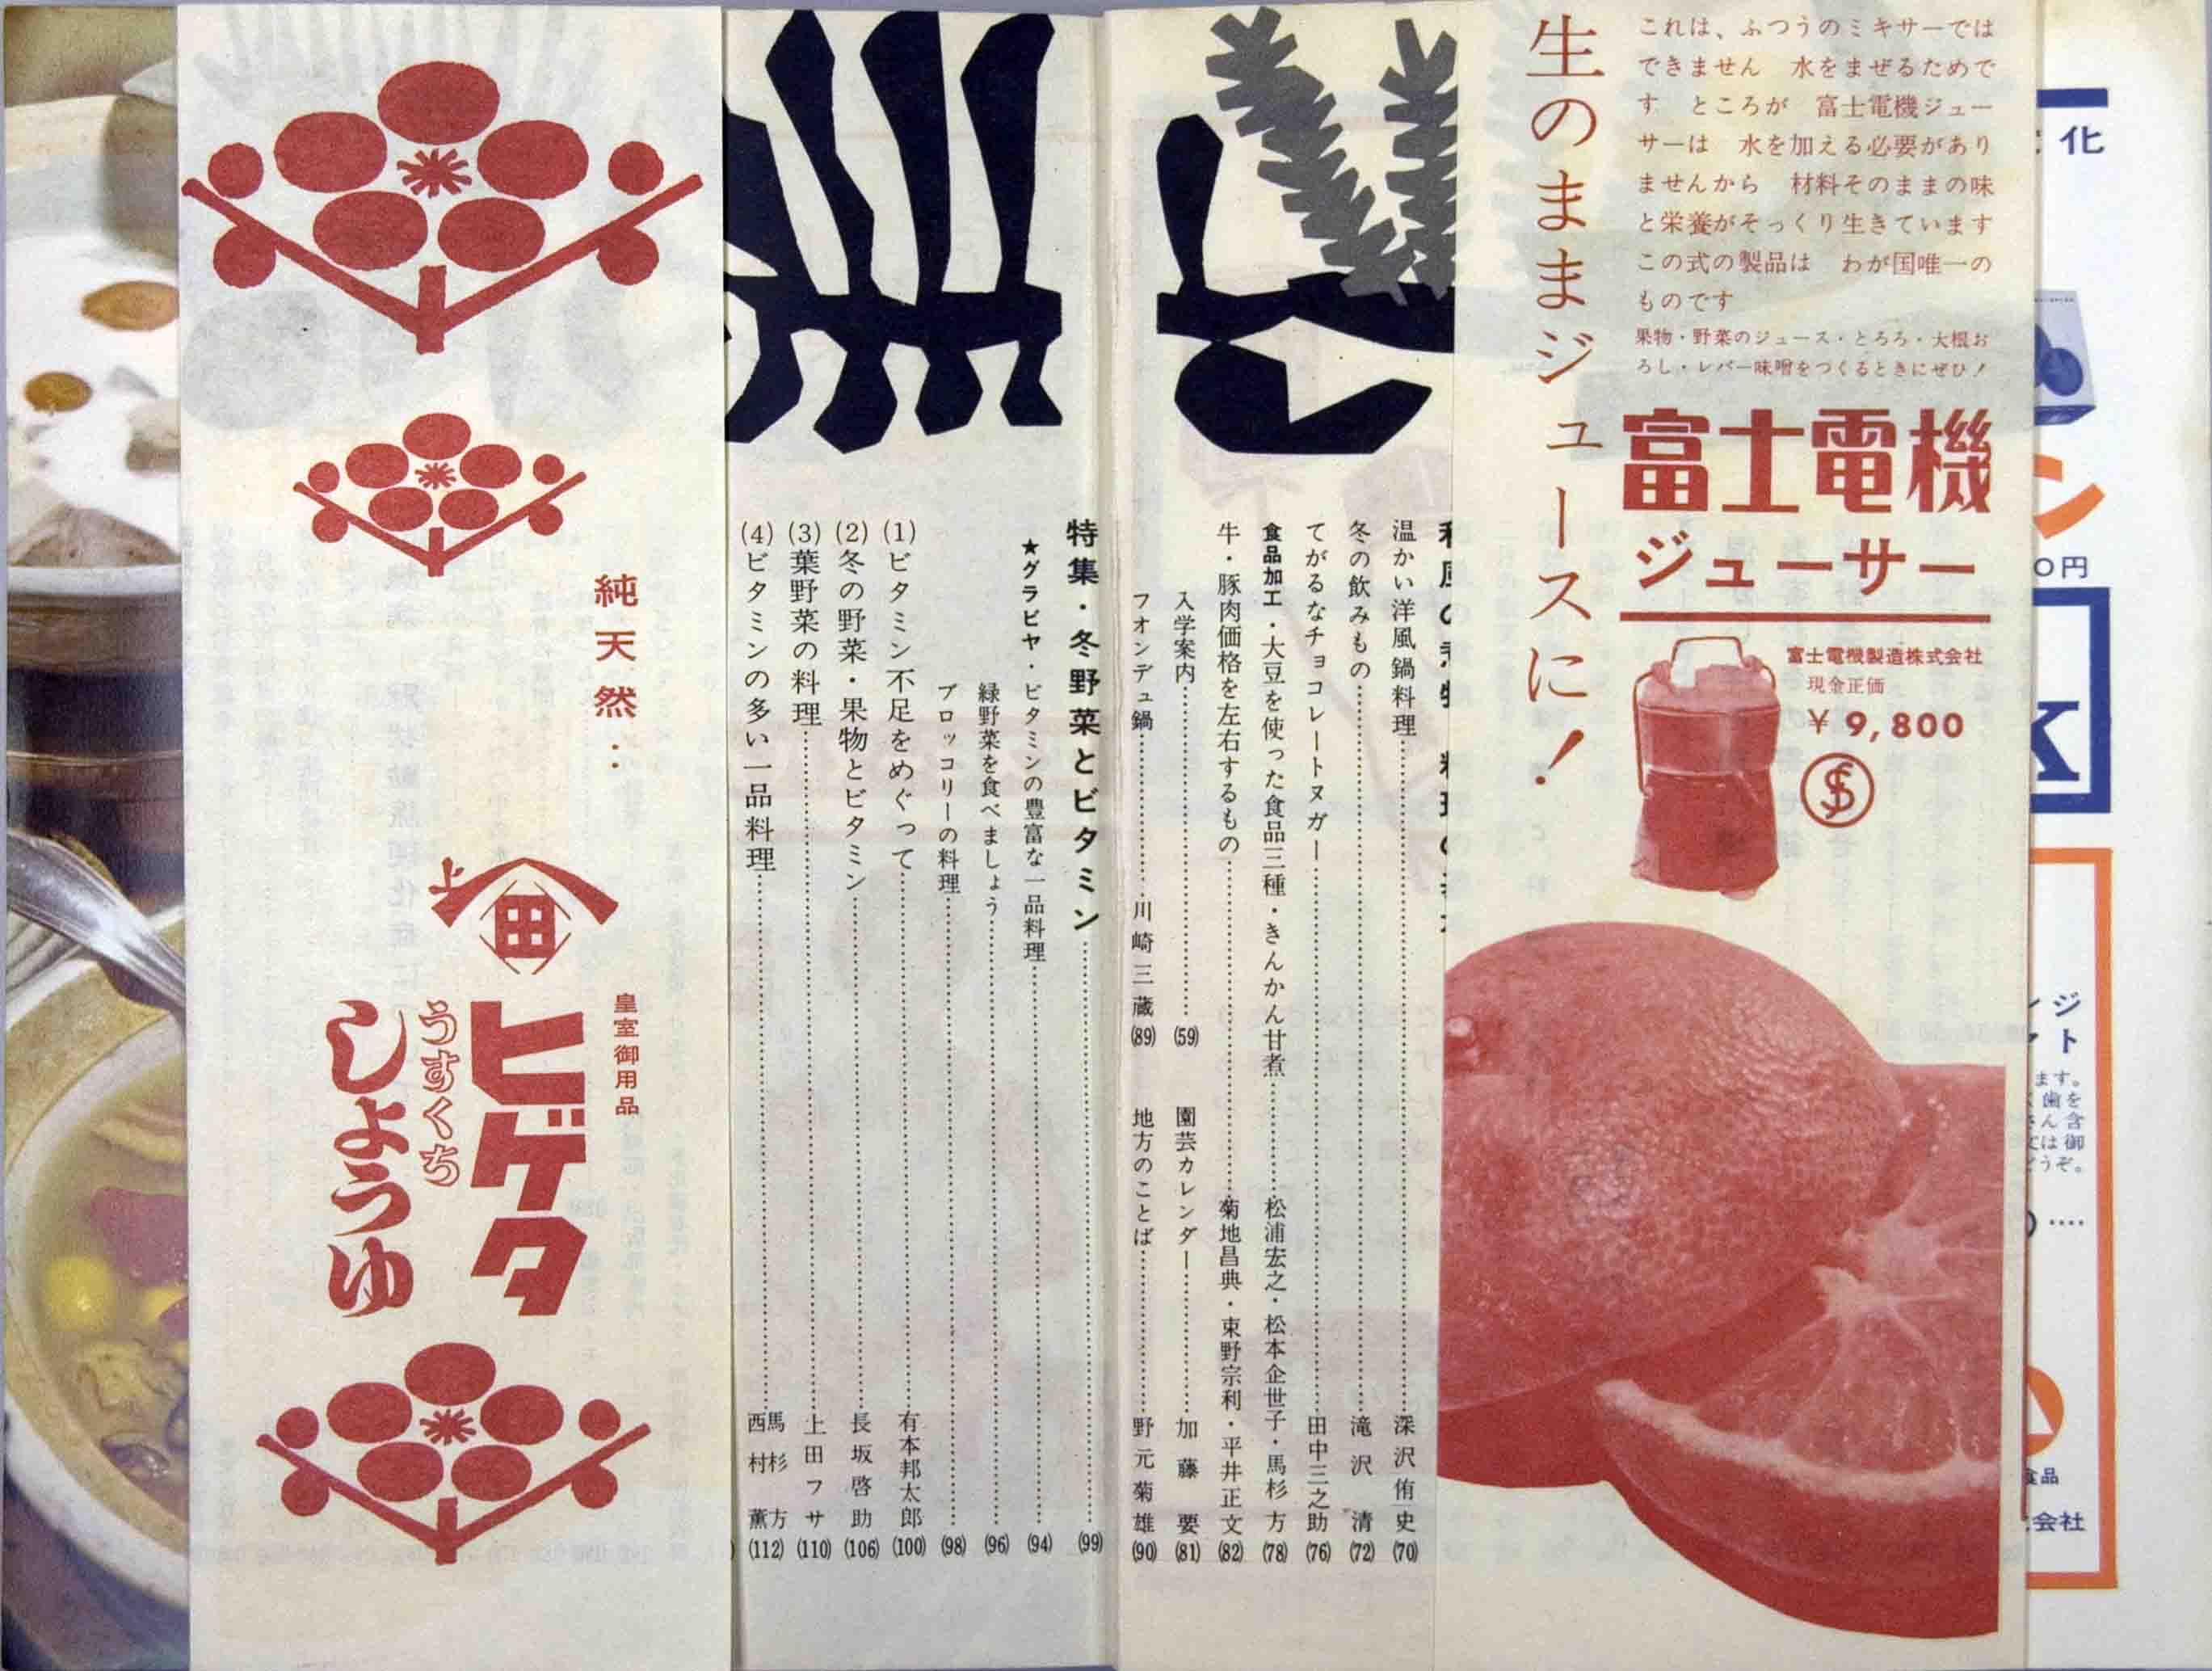 これは、ふつうのミキサーでは
できません　水をまぜるためで
す　ところが　富士電機ジュー
サーは　水を加える必要があり
ませんから　材料そのままの味
と栄養がそっくり生きています
この式の製品は　わが国唯一の
ものです
果物・野菜のジュース・とろろ・大根お
ろし・レバー味噌をつくるときにぜひ！
富士電機
ジューサー
富士電機製造株式会社
現金正価
￥9,800
生のままジュースに！
温かい洋風鍋料理……深沢侑史(70)
冬の飲みもの……滝沢清(72)
てがるなチョコレートヌガー……田中三之助(76)
食品加工・大豆を使った食品三種・きんかん甘煮……松浦宏之・松本企世子・馬杉方(78)
牛・豚肉価格を左右するもの……菊地昌典・東野宗利・平井正文(82)
入学案内……(59)
園芸カレンダー……加藤要(81)
フオンデュ鍋……川崎三蔵(89)
地方のことば……野元菊雄(90)
特集・冬野菜とビタミン……(99)
★グラビヤ・ビタミンの豊富な一品料理……(94)
緑野菜を食べましょう……(96)
ブロッコリーの料理……(98)
(1)ビタミン不足をめぐって……有本邦太郎(100)
(2)冬の野菜・果物とビタミン……長坂啓助(106)
(3)葉野菜の料理……上田フサ(110)
(4)ビタミンの多い一品料理……馬杉方 西村薫(112)
純天然‥
皇室御用品
上
田
ヒゲタ
うすくち
しょうゆ
化
ン
0円
K
ジ
ト
ます。
歯を
含
は御
うぞ。
食品
会社